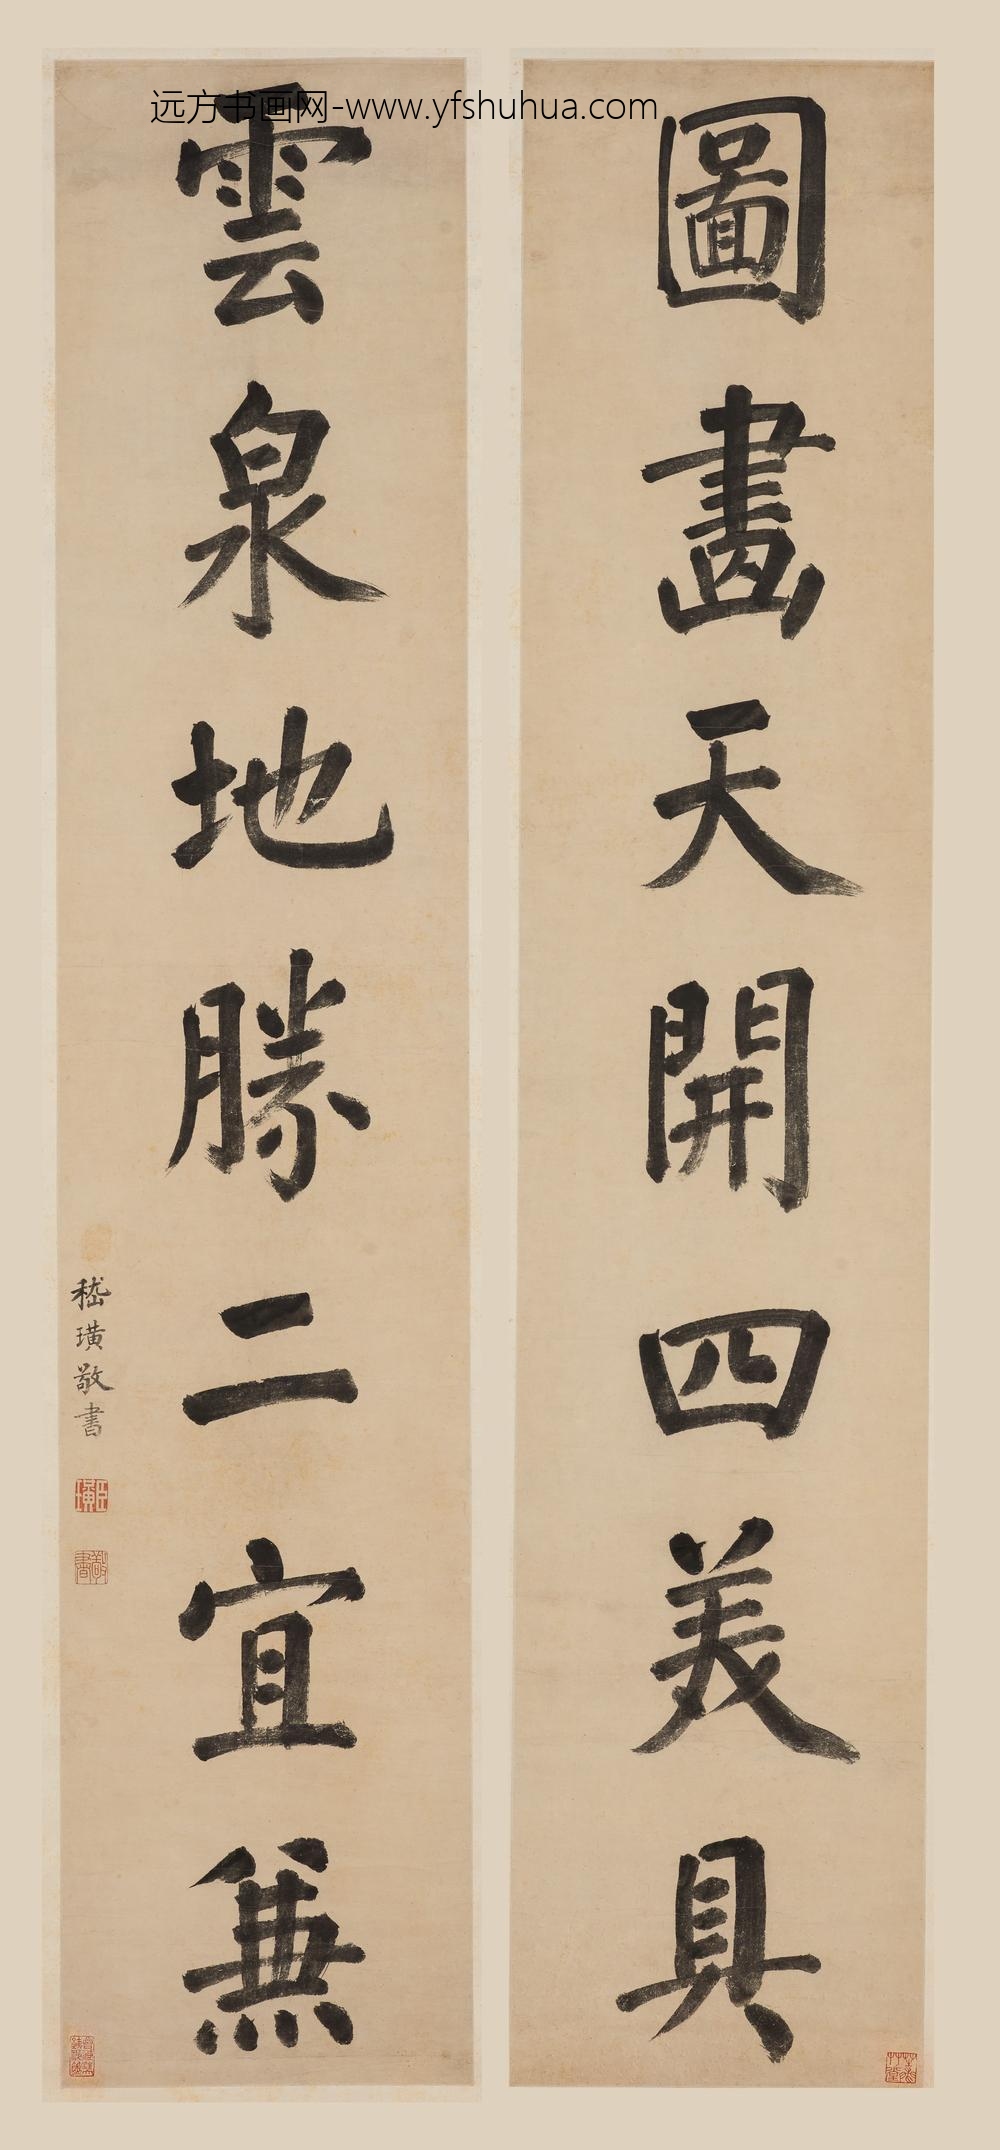 远方书画网-www.yfshuhua.com
圖畫天開四美具
雲泉地勝二宜兼
嵇璜敬書
臣璜
敬書